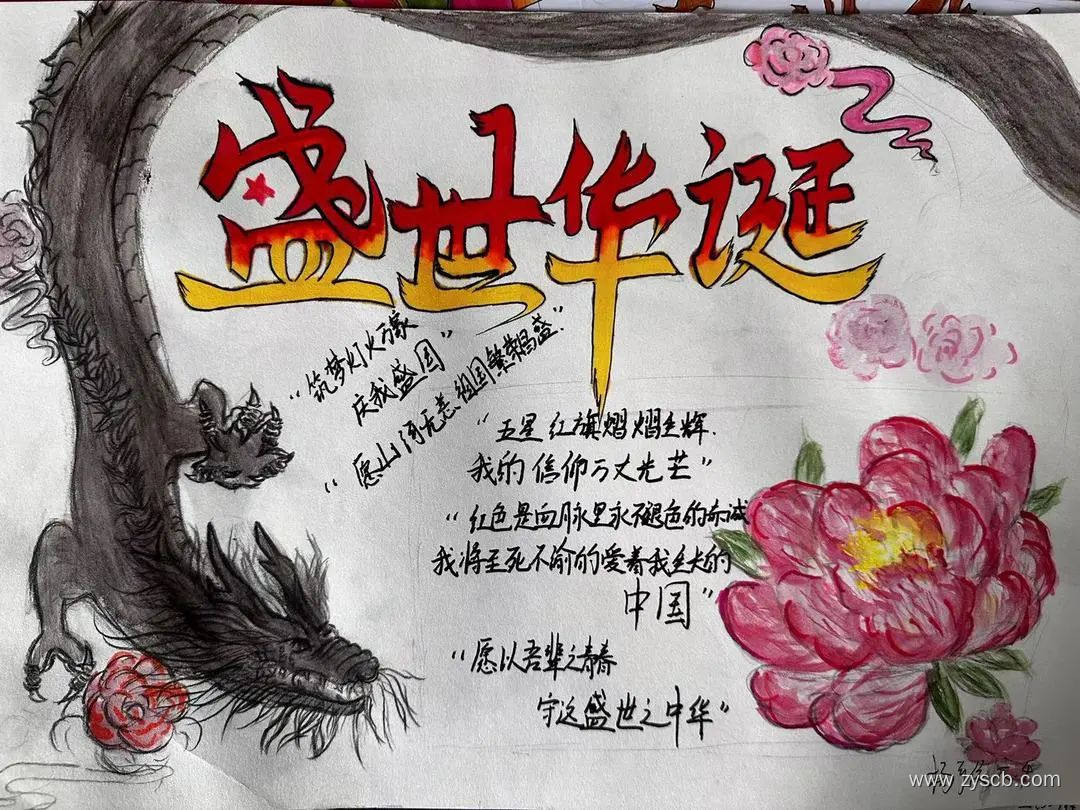 盛世华诞
"筑梦灯火万家
庆我盛国"
"愿山河无恙 祖国繁荣昌盛."
"五星红旗熠熠生辉.
我的信仰万丈光芒"
"红色是血脉里永不褪色的赤诚
我将至死不渝的爱着我
中国"
"愿以吾辈之青春
守这盛世之中华"
www.zyscb.com